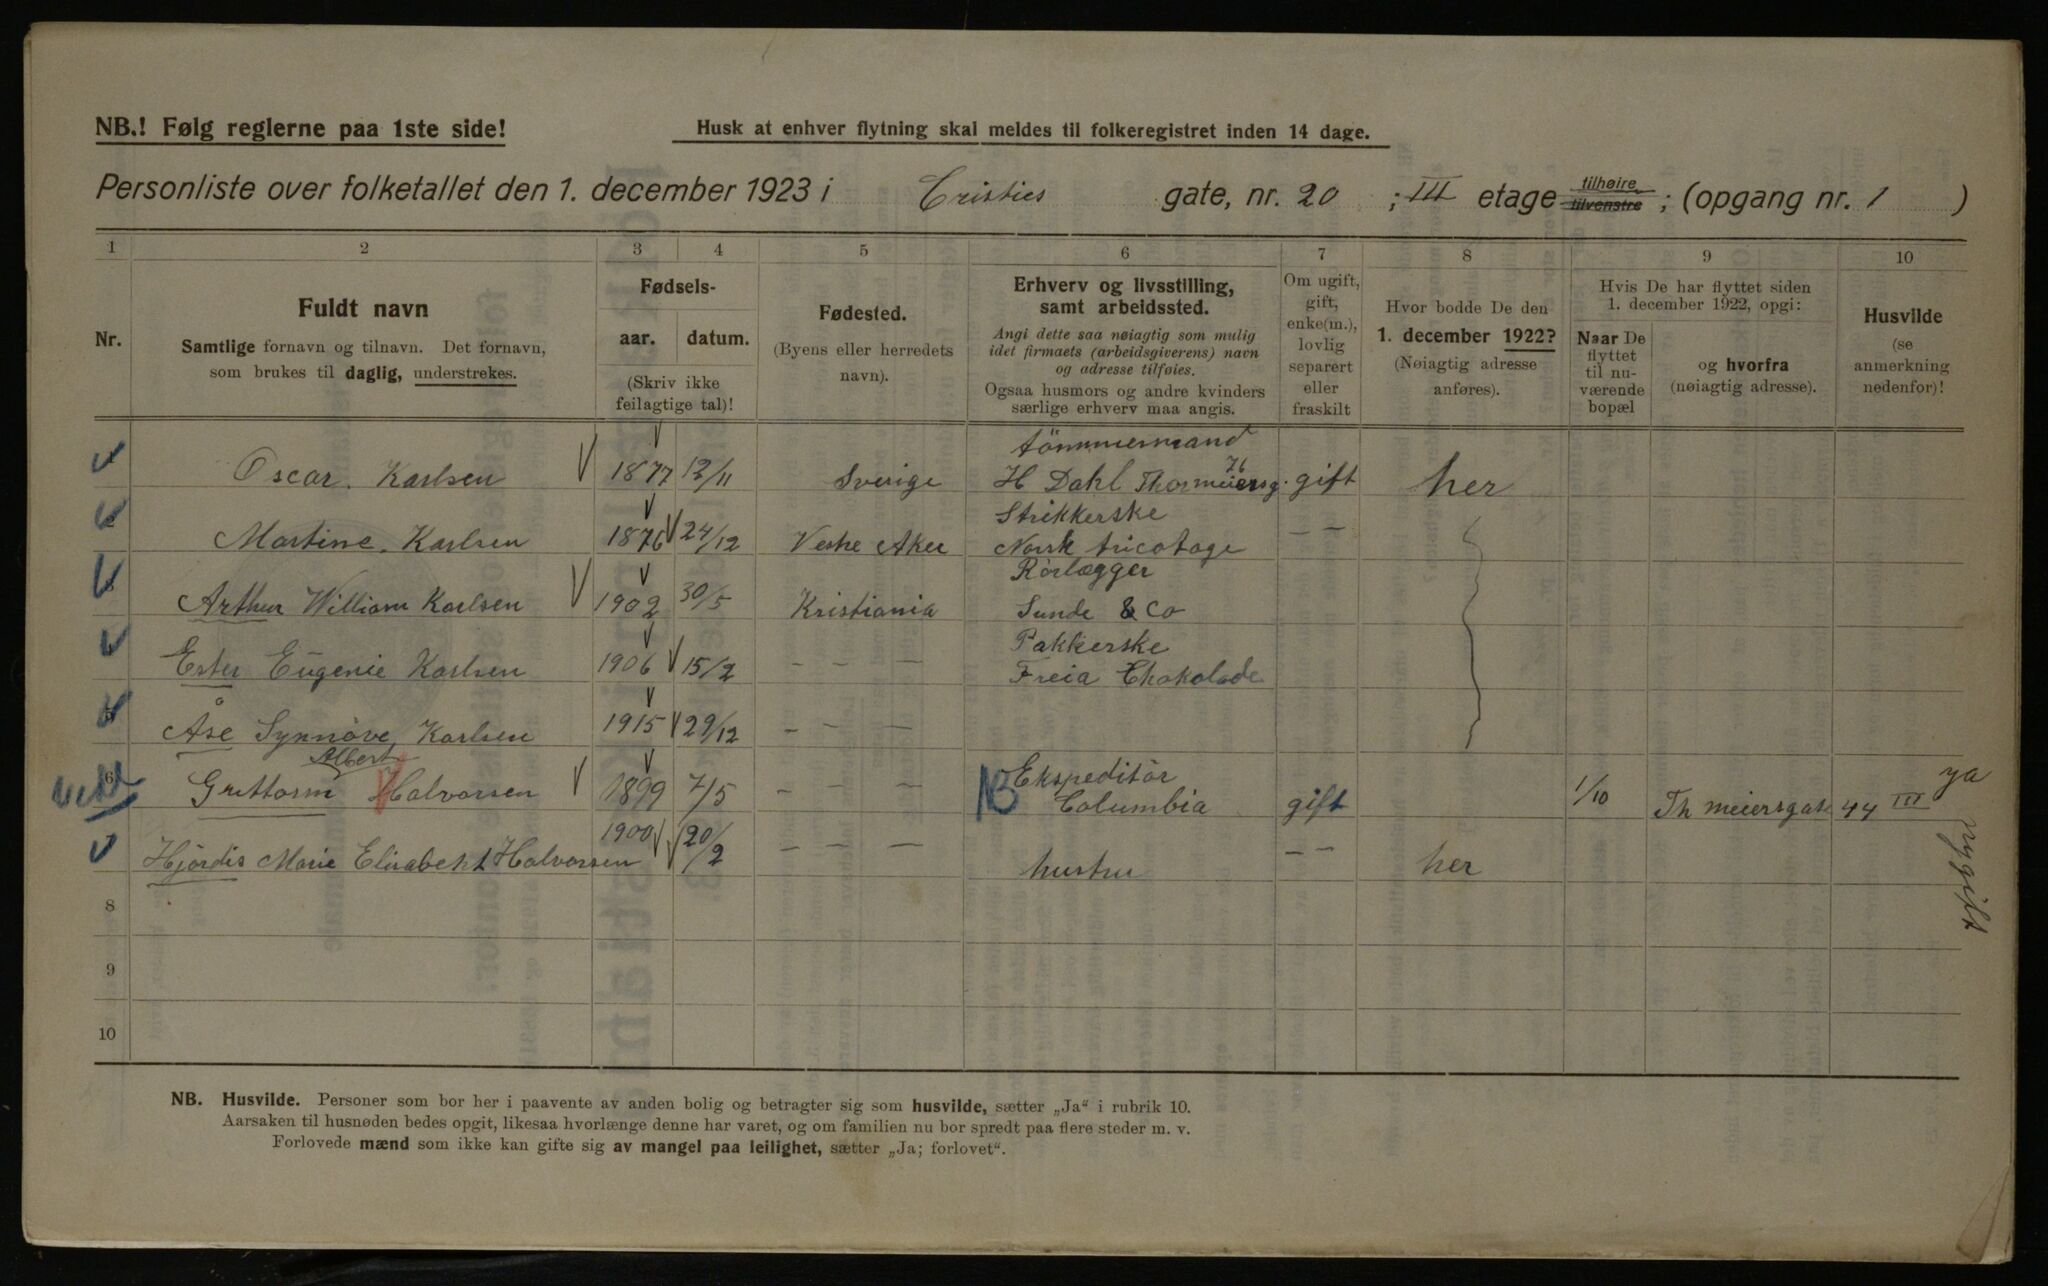 NB.! Følg reglerne paa 1ste side!
Husk at enhver flytning skal meldes til folkeregistret inden 14 dage.
Personliste over folketallet den 1. december 1923 i Cristies gate, nr. 20 ; III etage tilhøire tilvenstre ; (opgang nr. 1 )
1 2 3 4 5 6 7 8 9 10
Nr.
Fuldt navn
Samtlige fornavn og tilnavn. Det fornavn,
som brukes til daglig, understrekes.
Fødsels-
aar. datum.
(Skriv ikke
feilagtige tal)!
Fødested.
(Byens eller herredets
navn).
Erhverv og livsstilling,
samt arbeidssted.
Angi dette saa nøiagtig som mulig
idet firmaets (arbeidsgiverens) navn
og adresse tilføies.
Ogsaa husmors og andre kvinders
særlige erhverv maa angis.
Om ugift,
gift,
enke(m.),
lovlig
separert
eller
fraskilt
Hvor bodde De den
1. december 1922?
(Nøiagtig adresse
anføres).
Hvis De har flyttet siden
1. december 1922, opgi:
Naar De
flyttet
til nu-
værende
bopæl
og hvorfra
(nøiagtig adresse).
Husvilde
(se
anmerkning
nedenfor)!
tömmermand
Oscar. Karlsen 1877 12/11 Sverige H Dahl Thormeiersg. 76 gift her
Strikkerske
Martine. Karlsen 1876 24/12 Vestre Aker Norsk tricotage — —
Rörlægger
Arthur William Karlsen 1902 30/5 Kristiania Sunde & Co
Pakkerske
Ester Eugenie Karlsen 1906 15/2 — — — Freia Chokolade
5
Åse Synnöve Karlsen 1915 29/12 — — —
Albert
6 NB Ekspeditör ya
Guttorm Halvorsen 1899 7/5 — — — Columbia gift 1/10 Th meiersgate 44 III
nygift
Hjördis Marie Elisabeht Halvorsen 1900 20/2 — — — hustru — — her
8
9
10
NB. Husvilde. Personer som bor her i paavente av anden bolig og betragter sig som husvilde, sætter „Ja“ i rubrik 10.
Aarsaken til husnøden bedes opgit, likesaa hvorlænge denne har varet, og om familien nu bor spredt paa flere steder m. v.
Forlovede mænd som ikke kan gifte sig av mangel paa leilighet, sætter „Ja; forlovet“.